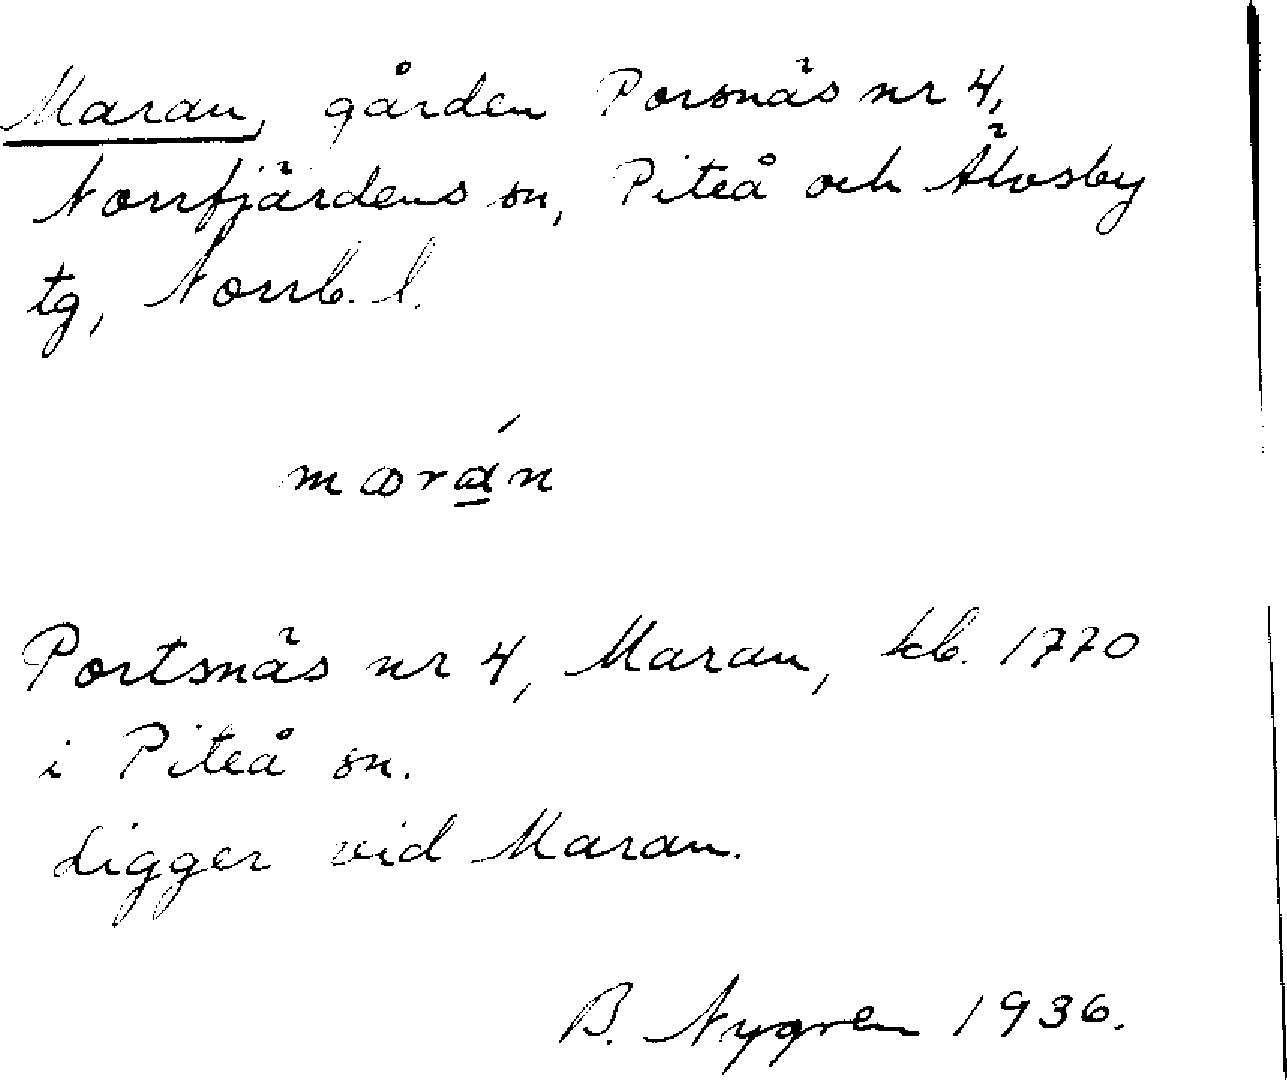 Maran, gården Porsnäs nr 4,
Norrfjärdens sn, Piteå och Älvsby
tg, Norrb. l.
mωrά̲n
Portsnäs nr 4, Maran, kb. 1770
i Piteå sn.
Ligger vid Maran.
B. Nygren 1936.